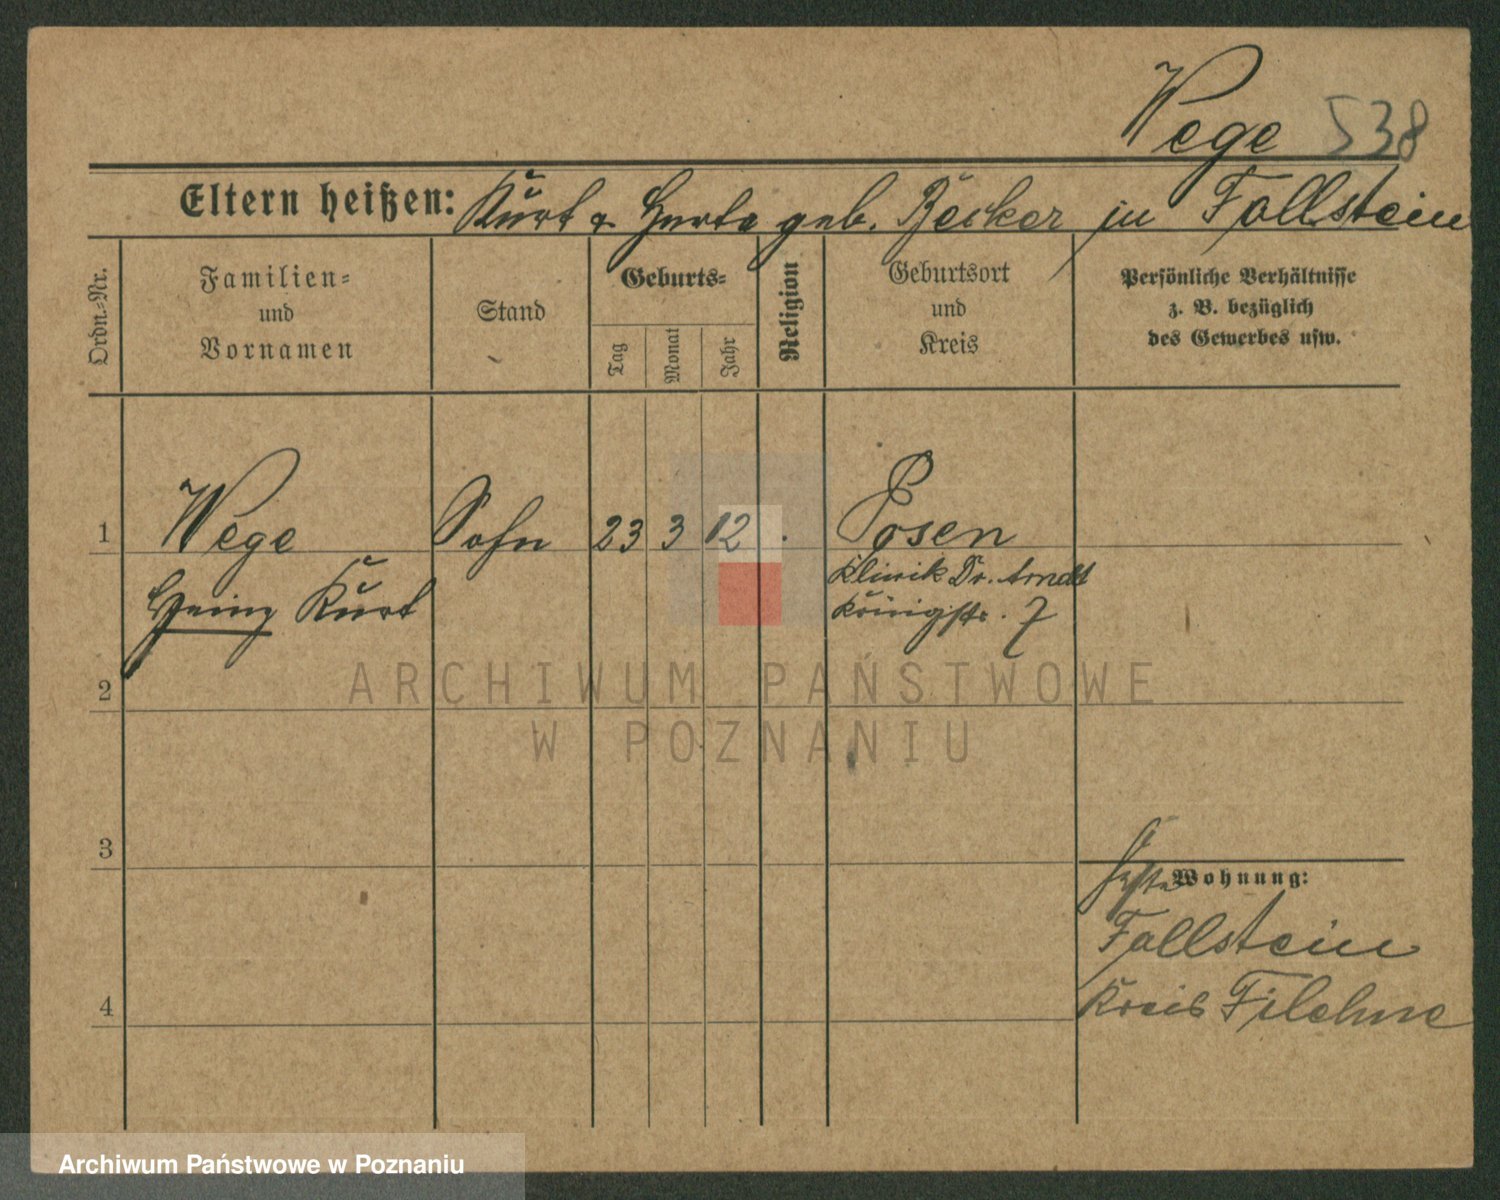 Wege 538
Eltern heißen: Kurt & Herta geb. Becker in Fallstein
Ordn.-Nr.
Familien-
und
Vornamen
Stand
Geburts-
Tag
Monat
Jahr
Religion
Geburtsort
und
Kreis
Persönliche Verhältnisse
z. B. bezüglich
des Gewerbes usw.
1 Wege Sohn 23 3 12 . Posen
Heinz Kurt
Klinik Dr. Arndt
Königstr. 7
2
ARCHIWUM PAŃSTWOWE
W POZNANIU
3
Wohnung:
Fallstein
Kreis Filehne
4
Archiwum Państwowe w Poznaniu